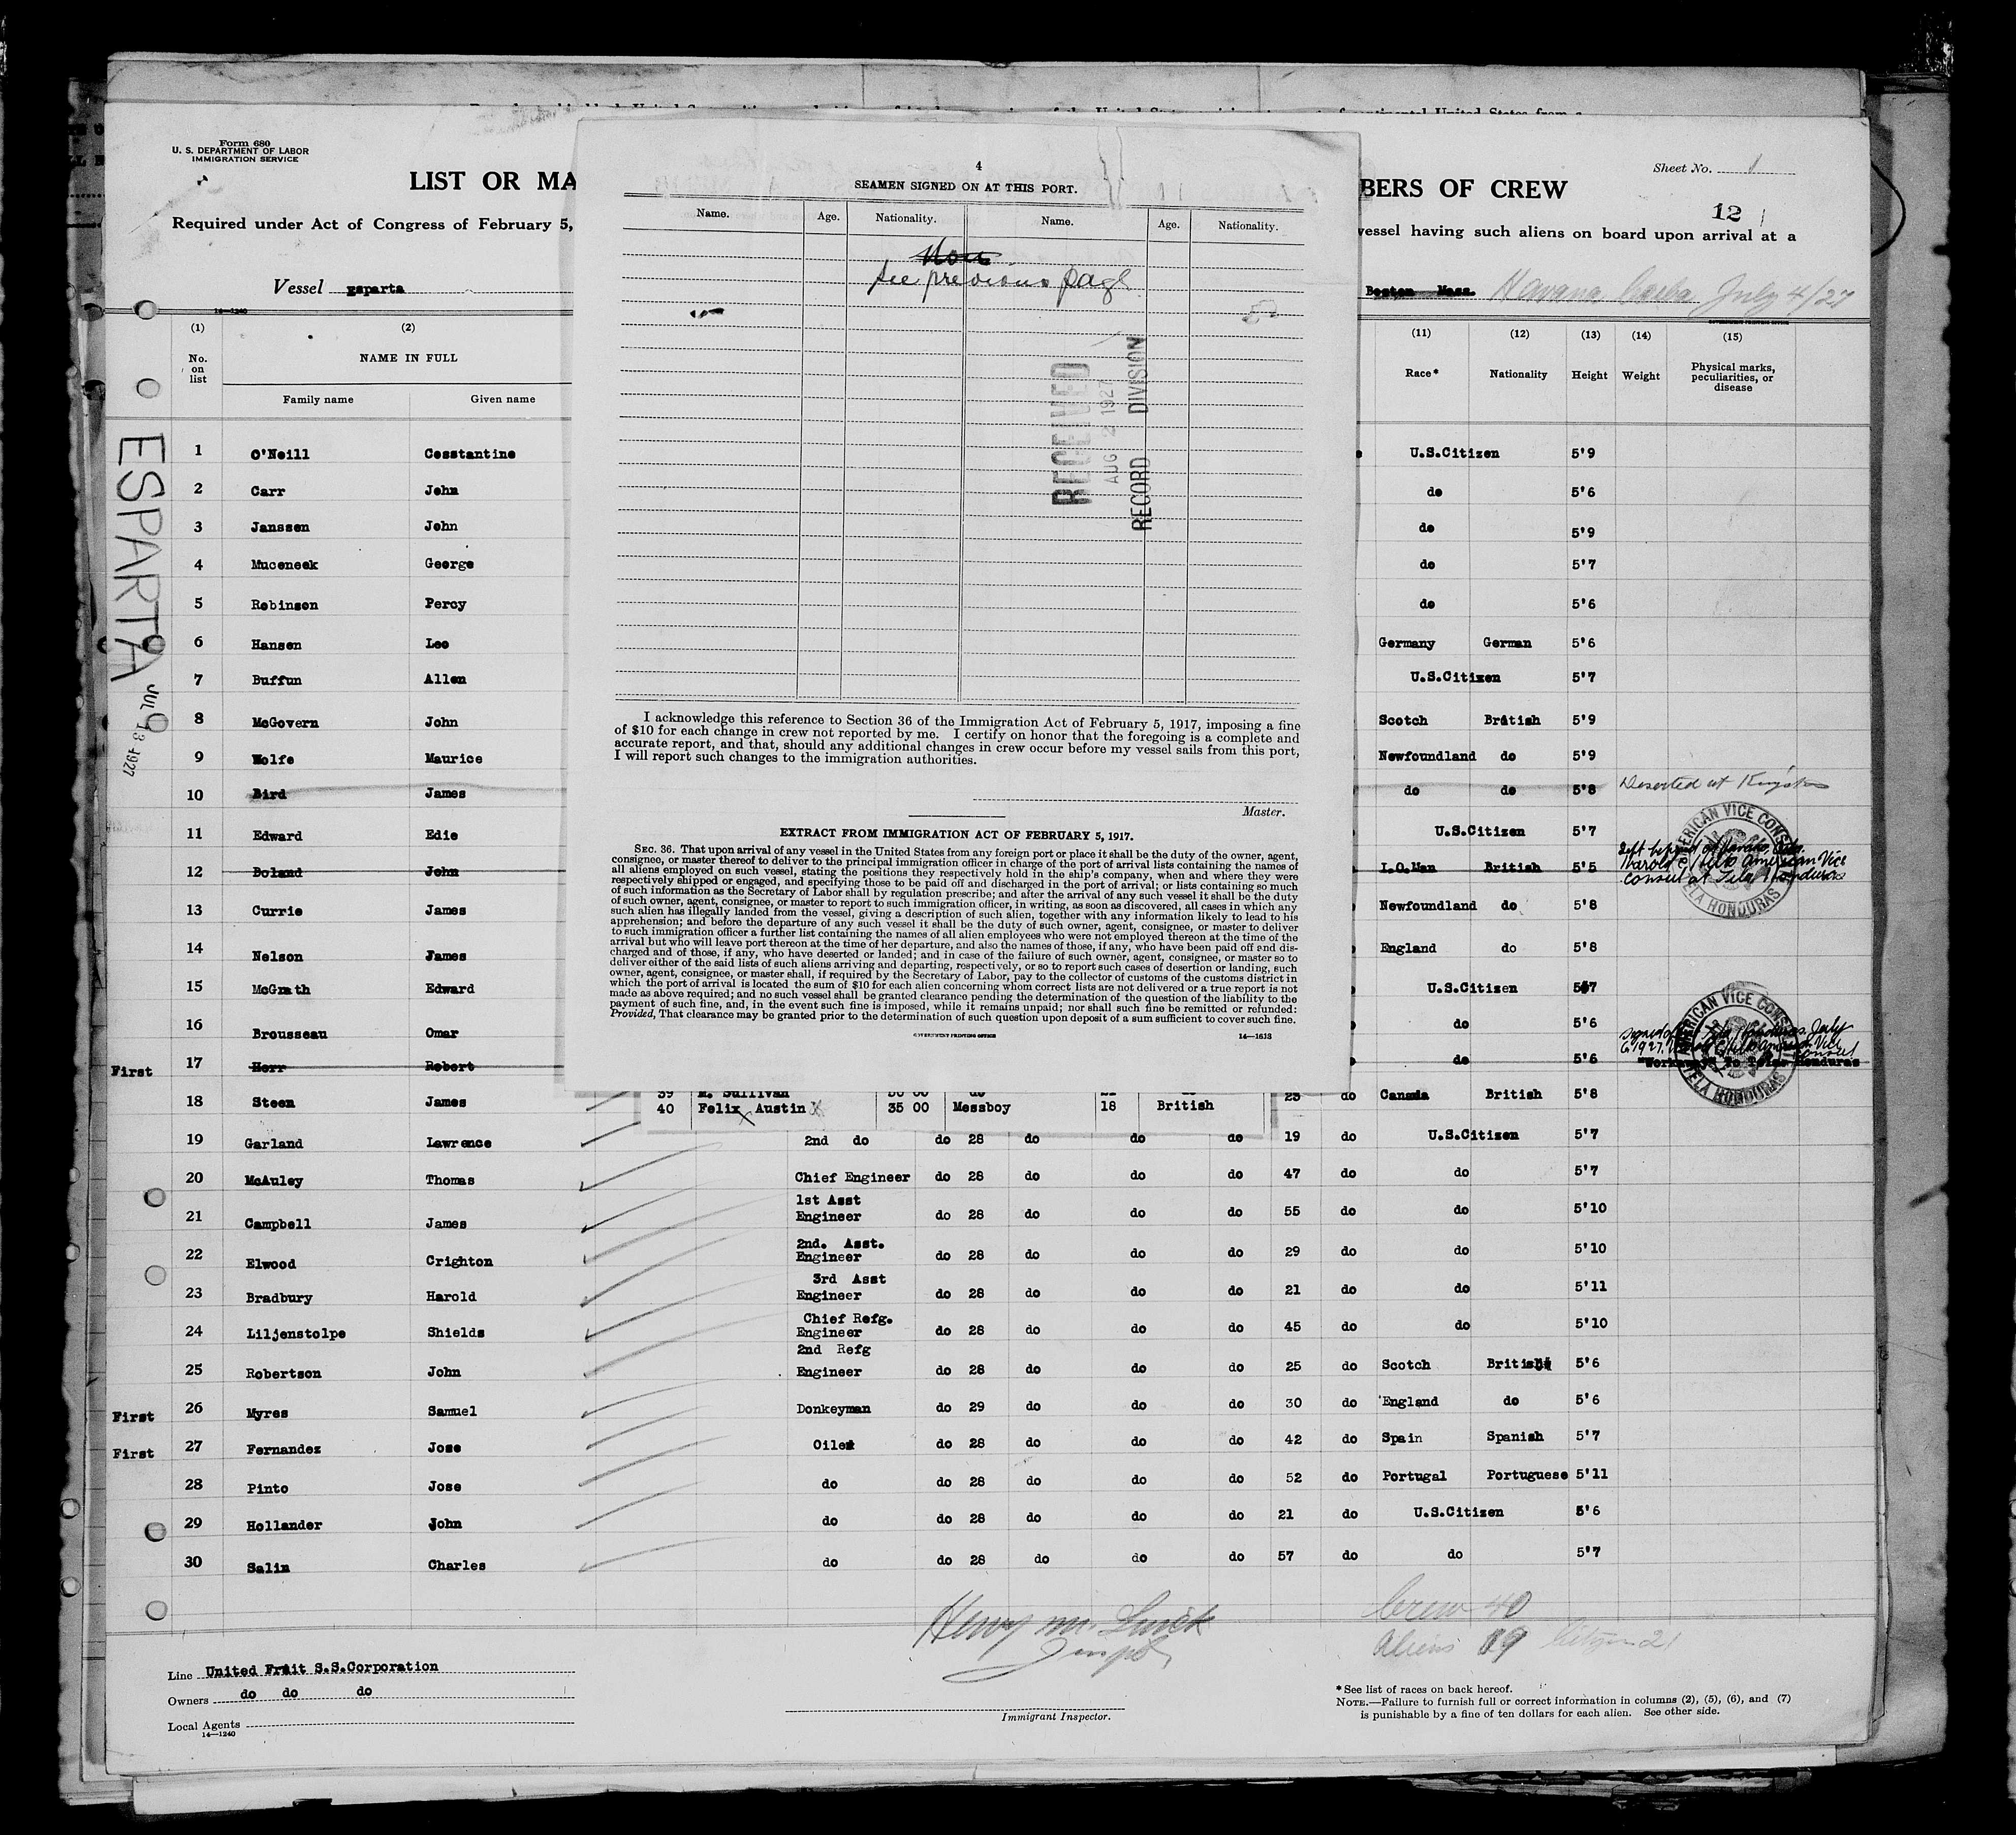 Form 680
U. S. DEPARTMENT OF LABOR
IMMIGRATION SERVICE
LIST OR MA
BERS OF CREW
Sheet No. 1
12
Required under Act of Congress of February 5,
vessel having such aliens on board upon arrival at a
Vessel Esparta
Boston Mass. Havana Cuba July 4/27
14—1240
GOVERNMENT PRINTING OFFICE
(1) (2) (11) (12) (13) (14) (15)
No. on list NAME IN FULL Race* Nationality Height Weight Physical marks, peculiarities, or disease
Family name Given name
ESPARTA
JUL 13 1927
1 O'Neill Cosstantine U.S.Citizen 5'9
2 Carr John do 5'6
3 Janssen John do 5'9
4 Muceneek George do 5'7
5 Robinson Percy do 5'6
6 Hansen Leo Germany German 5'6
7 Buffun Allen U.S.Citizen 5'7
8 McGovern John Scotch British 5'9
9 Wolfe Maurice Newfoundland do 5'9
10 Bird James do do 5'8 Deserted at Kingston
11 Edward Edie U.S.Citizen 5'7
12 Boland John I.O.Man British 5'5
American Vice
Consul at Tela Honduras
AMERICAN VICE CONSUL
TELA HONDURAS
13 Currie James Newfoundland do 5'8
14 Nelson James England do 5'8
15 McGrath Edward U.S.Citizen 5'7
16 Brousseau Omar do 5'6
First 17 Herr Robert do 5'6 "Workaway" To Tela Honduras
AMERICAN VICE CONSUL
TELA HONDURAS
18 Steen James 23 do Canada British 5'8
19 Garland Lawrence 2nd do do 28 do do do 19 do U.S.Citizen 5'7
20 McAuley Thomas Chief Engineer do 28 do do do 47 do do 5'7
21 Campbell James 1st Asst Engineer do 28 do do do 55 do do 5'10
22 Elwood Crighton 2nd. Asst. Engineer do 28 do do do 29 do do 5'10
23 Bradbury Harold 3rd Asst Engineer do 28 do do do 21 do do 5'11
24 Liljenstolpe Shields Chief Refg. Engineer do 28 do do do 45 do do 5'10
25 Robertson John 2nd Refg Engineer do 28 do do do 25 do Scotch British 5'6
First 26 Myres Samuel Donkeyman do 29 do do do 30 do England do 5'6
First 27 Fernandez Jose Oiler do 28 do do do 42 do Spain Spanish 5'7
28 Pinto Jose do do 28 do do do 52 do Portugal Portuguese 5'11
29 Hollander John do do 28 do do do 21 do U.S.Citizen 5'6
30 Salin Charles do do 28 do do do 57 do do 5'7
Crew 40
Aliens 19 Citizen 21
Line United Fruit S.S.Corporation
Owners do do do
Local Agents
14—1240
Immigrant Inspector.
* See list of races on back hereof.
NOTE.—Failure to furnish full or correct information in columns (2), (5), (6), and (7)
is punishable by a fine of ten dollars for each alien. See other side.
4
SEAMEN SIGNED ON AT THIS PORT.
Name. Age. Nationality. Name. Age. Nationality.
See previous page
RECEIVED
AUG 2 1927
RECORD DIVISION
I acknowledge this reference to Section 36 of the Immigration Act of February 5, 1917, imposing a fine
of $10 for each change in crew not reported by me. I certify on honor that the foregoing is a complete and
accurate report, and that, should any additional changes in crew occur before my vessel sails from this port,
I will report such changes to the immigration authorities.
Master.
EXTRACT FROM IMMIGRATION ACT OF FEBRUARY 5, 1917.
SEC. 36. That upon arrival of any vessel in the United States from any foreign port or place it shall be the duty of the owner, agent,
consignee, or master thereof to deliver to the principal immigration officer in charge of the port of arrival lists containing the names of
all aliens employed on such vessel, stating the positions they respectively hold in the ship's company, when and where they were
respectively shipped or engaged, and specifying those to be paid off and discharged in the port of arrival; or lists containing so much
of such information as the Secretary of Labor shall by regulation prescribe; and after the arrival of any such vessel it shall be the duty
of such owner, agent, consignee, or master to report to such immigration officer, in writing, as soon as discovered, all cases in which any
such alien has illegally landed from the vessel, giving a description of such alien, together with any information likely to lead to his
apprehension; and before the departure of any such vessel it shall be the duty of such owner, agent, consignee, or master to deliver
to such immigration officer a further list containing the names of all alien employees who were not employed thereon at the time of the
arrival but who will leave port thereon at the time of her departure, and also the names of those, if any, who have been paid off and dis-
charged and of those, if any, who have deserted or landed; and in case of the failure of such owner, agent, consignee, or master so to
deliver either of the said lists of such aliens arriving and departing, respectively, or so to report such cases of desertion or landing, such
owner, agent, consignee, or master shall, if required by the Secretary of Labor, pay to the collector of customs of the customs district in
which the port of arrival is located the sum of $10 for each alien concerning whom correct lists are not delivered or a true report is not
made as above required; and no such vessel shall be granted clearance pending the determination of the question of the liability to the
payment of such fine, and, in the event such fine is imposed, while it remains unpaid; nor shall such fine be remitted or refunded:
Provided, That clearance may be granted prior to the determination of such question upon deposit of a sum sufficient to cover such fine.
GOVERNMENT PRINTING OFFICE 14—1613
39 M. Sullivan
40 Felix Austin 35 00 Messboy 18 British